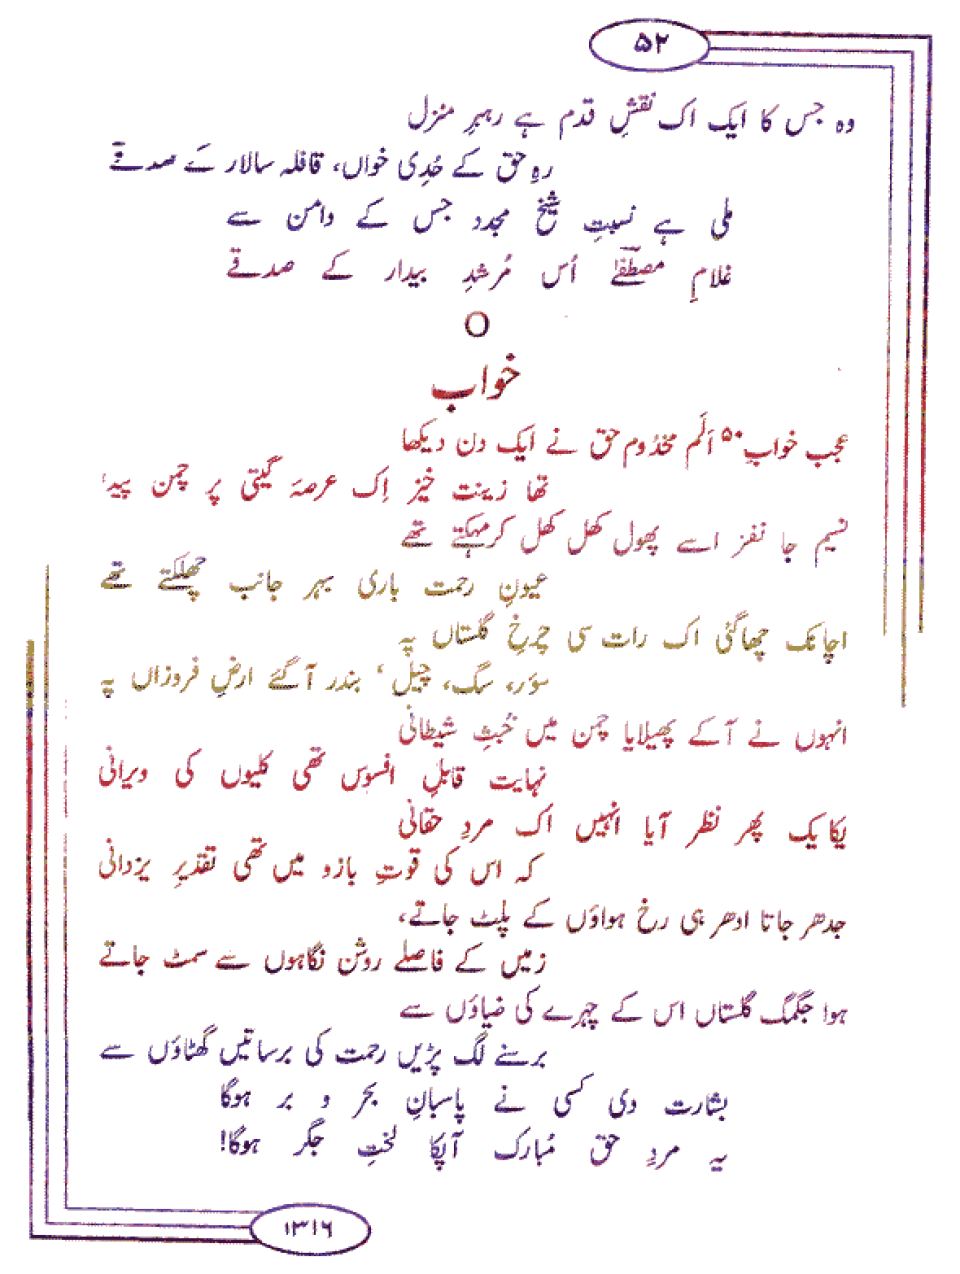 ۵۲
وہ جس کا ایک اک نقشِ قدم ہے رہبرِ منزل
رہِ حق کے حُدِی خواں، قافلہ سالار کے صدقے
ملی ہے نسبتِ شیخ مجدد جس کے دامن سے
غلامِ مصطفٰےؐ اُس مُرشدِ بیدار کے صدقے
O
خواب
عجب خوابِ ۵۰ اَلَم مخدُوم حق نے ایک دن دیکھا
تھا زینت خیز اِک عرصۂ گیتی پر چمن پیدا
نسیم جا نفز اسے پھول کھل کھل کر مہکتے تھے
عیونِ رحمت باری بہر جانب چھلکتے تھے
اچانک چھا گئی اک رات سی چرخِ گلستاں پہ
سؤر، سگ، چیل، بندر آ گئے ارضِ فروزاں پہ
انہوں نے آ کے پھیلایا چمن میں خُبثِ شیطانی
نہایت قابلِ افسوس تھی کلیوں کی ویرانی
یکایک پھر نظر آیا انہیں اک مردِ حقانی
کہ اس کی قوتِ بازو میں تھی تقدیرِ یزدانی
جدھر جاتا ادھر ہی رخ ہواؤں کے پلٹ جاتے،
زمیں کے فاصلے روشن نگاہوں سے سمٹ جاتے
ہوا جگمگ گلستاں اس کے چہرے کی ضیاؤں سے
برسنے لگ پڑیں رحمت کی برساتیں گھٹاؤں سے
بشارت دی کسی نے پاسبانِ بحر و بر ہوگا
یہ مردِ حق مُبارک آپکا لختِ جگر ہوگا!
۱۳۱۶